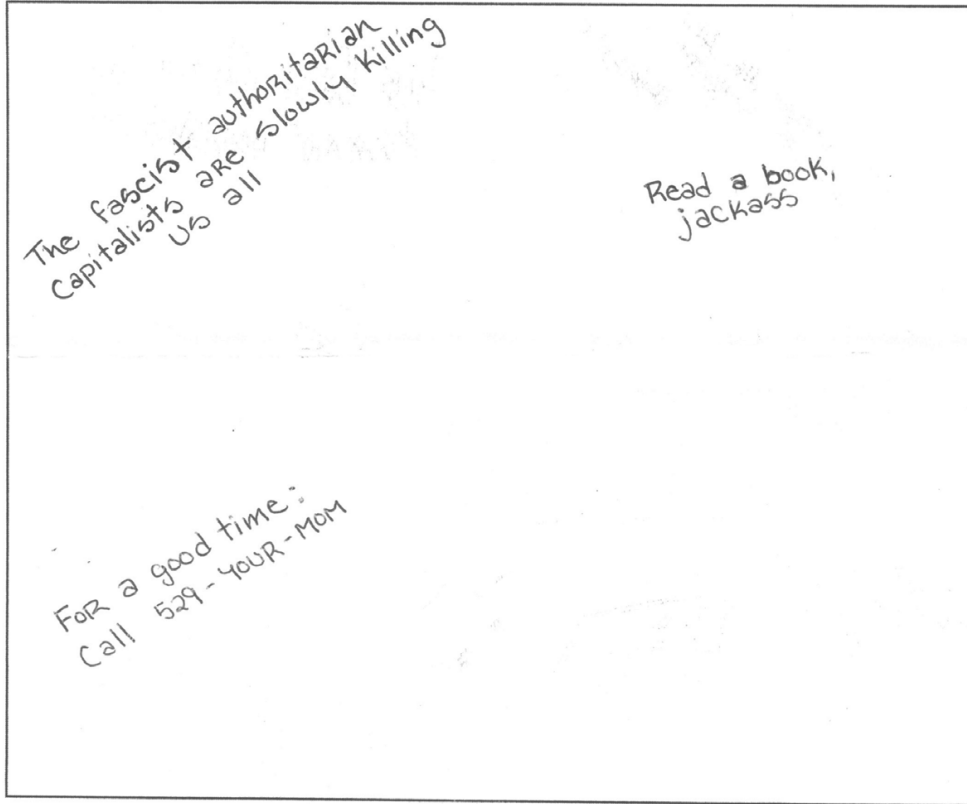 The fascist authoritarian
capitalists are slowly killing
us all
Read a book,
jackass
For a good time:
Call 529-YOUR-MOM